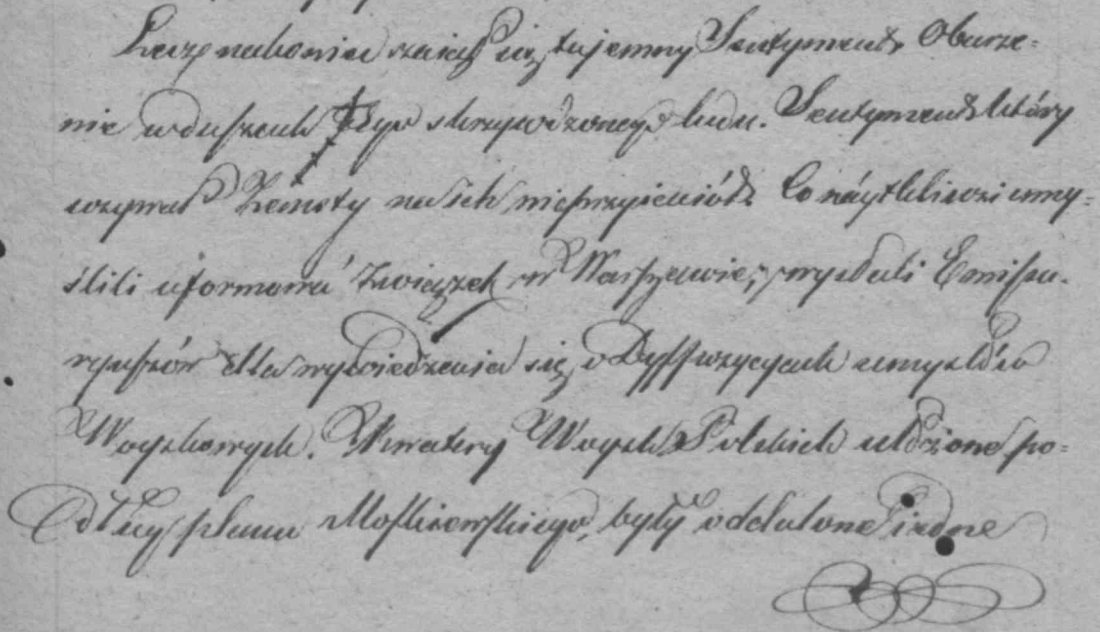 Lecz nakoniec zaiął się tajemny Sentyment Oburze-
nie w duszach tego skrzywdzonego ludu. Sentyment który
wzywał Zemsty nad ich nieprzyiaciół. Co náytkliwsi umy-
ślili uformować Związek w Warszawie; wysłali Emissa-
ryuszów dla wywiedzenia się o Dyspozycyach umysłów
Woyskowych. Kwatery Woysk Polskich ułożone po-
dług planu Moskiewskiego, były oddalone iedne